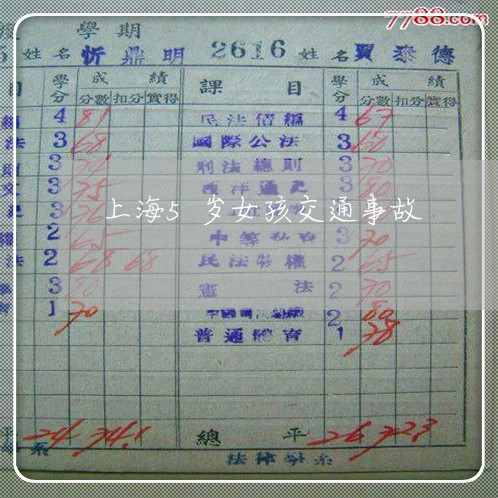 7788.com
度 學期
5 姓名 忻鼎明 2616 姓名 賈泰德
目 學分 成績 分數 扣分 實得 課目 學分 成績 分數 扣分 實得
編 4 81 民法債編 4 67
法 3 68 國際公法 3 60
則 3 刑法總則 3 70
文 3 75 西洋通史 3 70
史 3 76 3
權 2 65 3 70
法 2 68 68 民法物權 2 65
3 80 憲法 2 70
育 1 70 2 80
普通體育 1 78
上海5 岁女孩交通事故
平 24 74.1 總平 26 72.3
系 法律學系